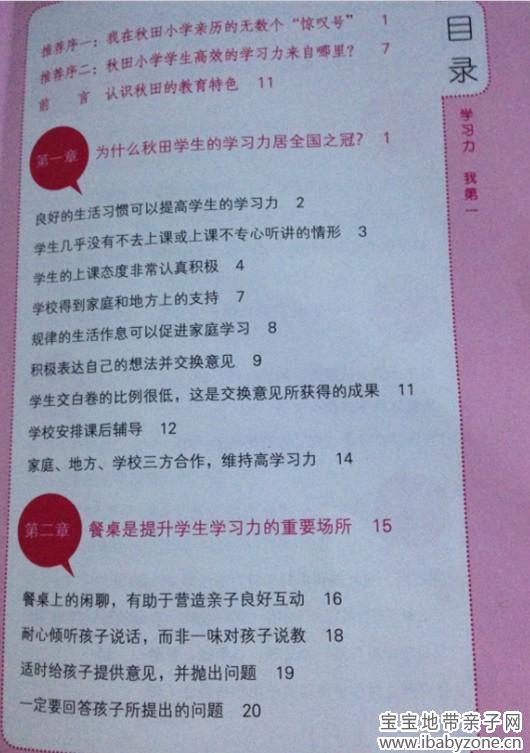 目录
学习力 我第一
推荐序一：我在秋田小学亲历的无数个“惊叹号” 1
推荐序二：秋田小学学生高效的学习力来自哪里？ 7
前 言 认识秋田的教育特色 11
第一章 为什么秋田学生的学习力居全国之冠？ 1
良好的生活习惯可以提高学生的学习力 2
学生几乎没有不去上课或上课不专心听讲的情形 3
学生的上课态度非常认真积极 4
学校得到家庭和地方上的支持 7
规律的生活作息可以促进家庭学习 8
积极表达自己的想法并交换意见 9
学生交白卷的比例很低，这是交换意见所获得的成果 11
学校安排课后辅导 12
家庭、地方、学校三方合作，维持高学习力 14
第二章 餐桌是提升学生学习力的重要场所 15
餐桌上的闲聊，有助于营造亲子良好互动 16
耐心倾听孩子说话，而非一味对孩子说教 18
适时给孩子提供意见，并抛出问题 19
一定要回答孩子所提出的问题 20
宝宝地带亲子网
www.ibabyzone.cn